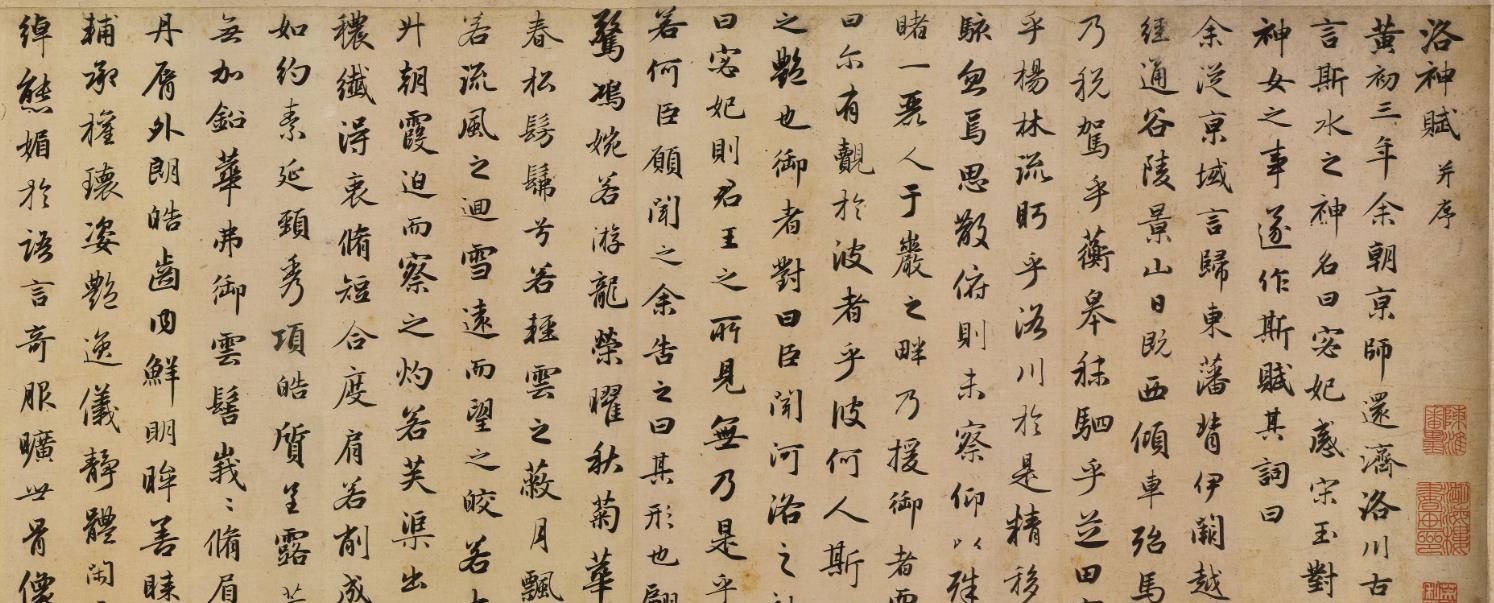 洛神賦 并序
黃初三年余朝京師還濟洛川古
言斯水之神名曰宓妃感宋玉對
神女之事遂作斯賦其詞曰
余從京域言歸東藩背伊闕越
經通谷陵景山日既西傾車殆馬
乃稅駕乎蘅皋秣駟乎芝田
乎楊林流眄乎洛川於是精移
駭忽焉思散俯則未察仰以殊
睹一麗人于巖之畔乃援御者而
曰尔有覿於彼者乎彼何人斯
之豔也御者對曰臣聞河洛之
曰宓妃則君王之所見無乃是乎
若何臣願聞之余告之曰其形也翩
驚鴻婉若游龍榮曜秋菊華
春松髣髴兮若輕雲之蔽月飄
若流風之迴雪遠而望之皎若
升朝霞迫而察之灼若芙渠出
穠纖得衷脩短合度肩若削成
如約素延頸秀項皓質呈露
無加鉛華弗御雲髻峩〻脩眉
丹脣外朗皓齒內鮮明眸善睞
輔承權瓌姿豔逸儀靜體閑
綽態媚於語言奇服曠世骨像